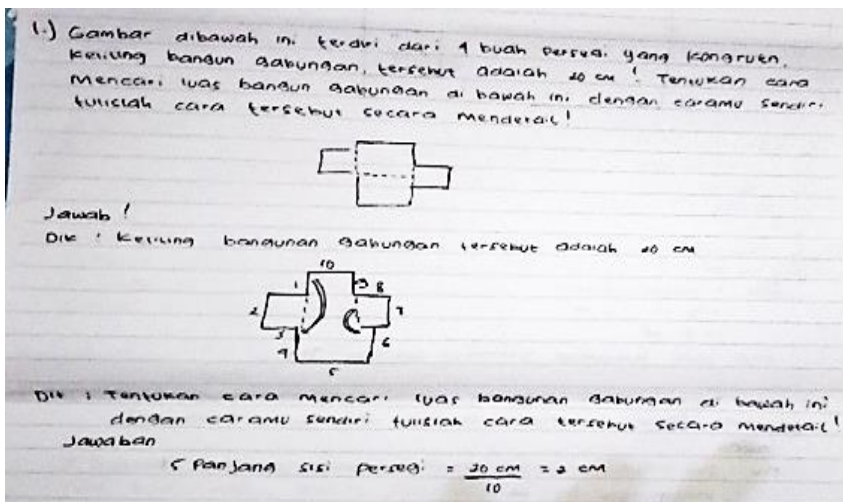 1.) Gambar dibawah ini terdiri dari 4 buah persegi yang kongruen.
Keliling bangun gabungan, tersebut adalah 20 cm ! Tentukan cara
mencari luas bangun gabungan di bawah ini dengan caramu sendiri
tulislah cara tersebut secara mendetail!
Jawab !
Dik : Keliling bangunan gabungan tersebut adalah 20 cm
10
1 9 8
2 7
3 6
4
5
Dit : Tentukan cara mencari luas bangunan gabungan di bawah ini
dengan caramu sendiri tulislah cara tersebut secara mendetail!
Jawaban
Panjang sisi persegi = 20 cm = 2 cm
10